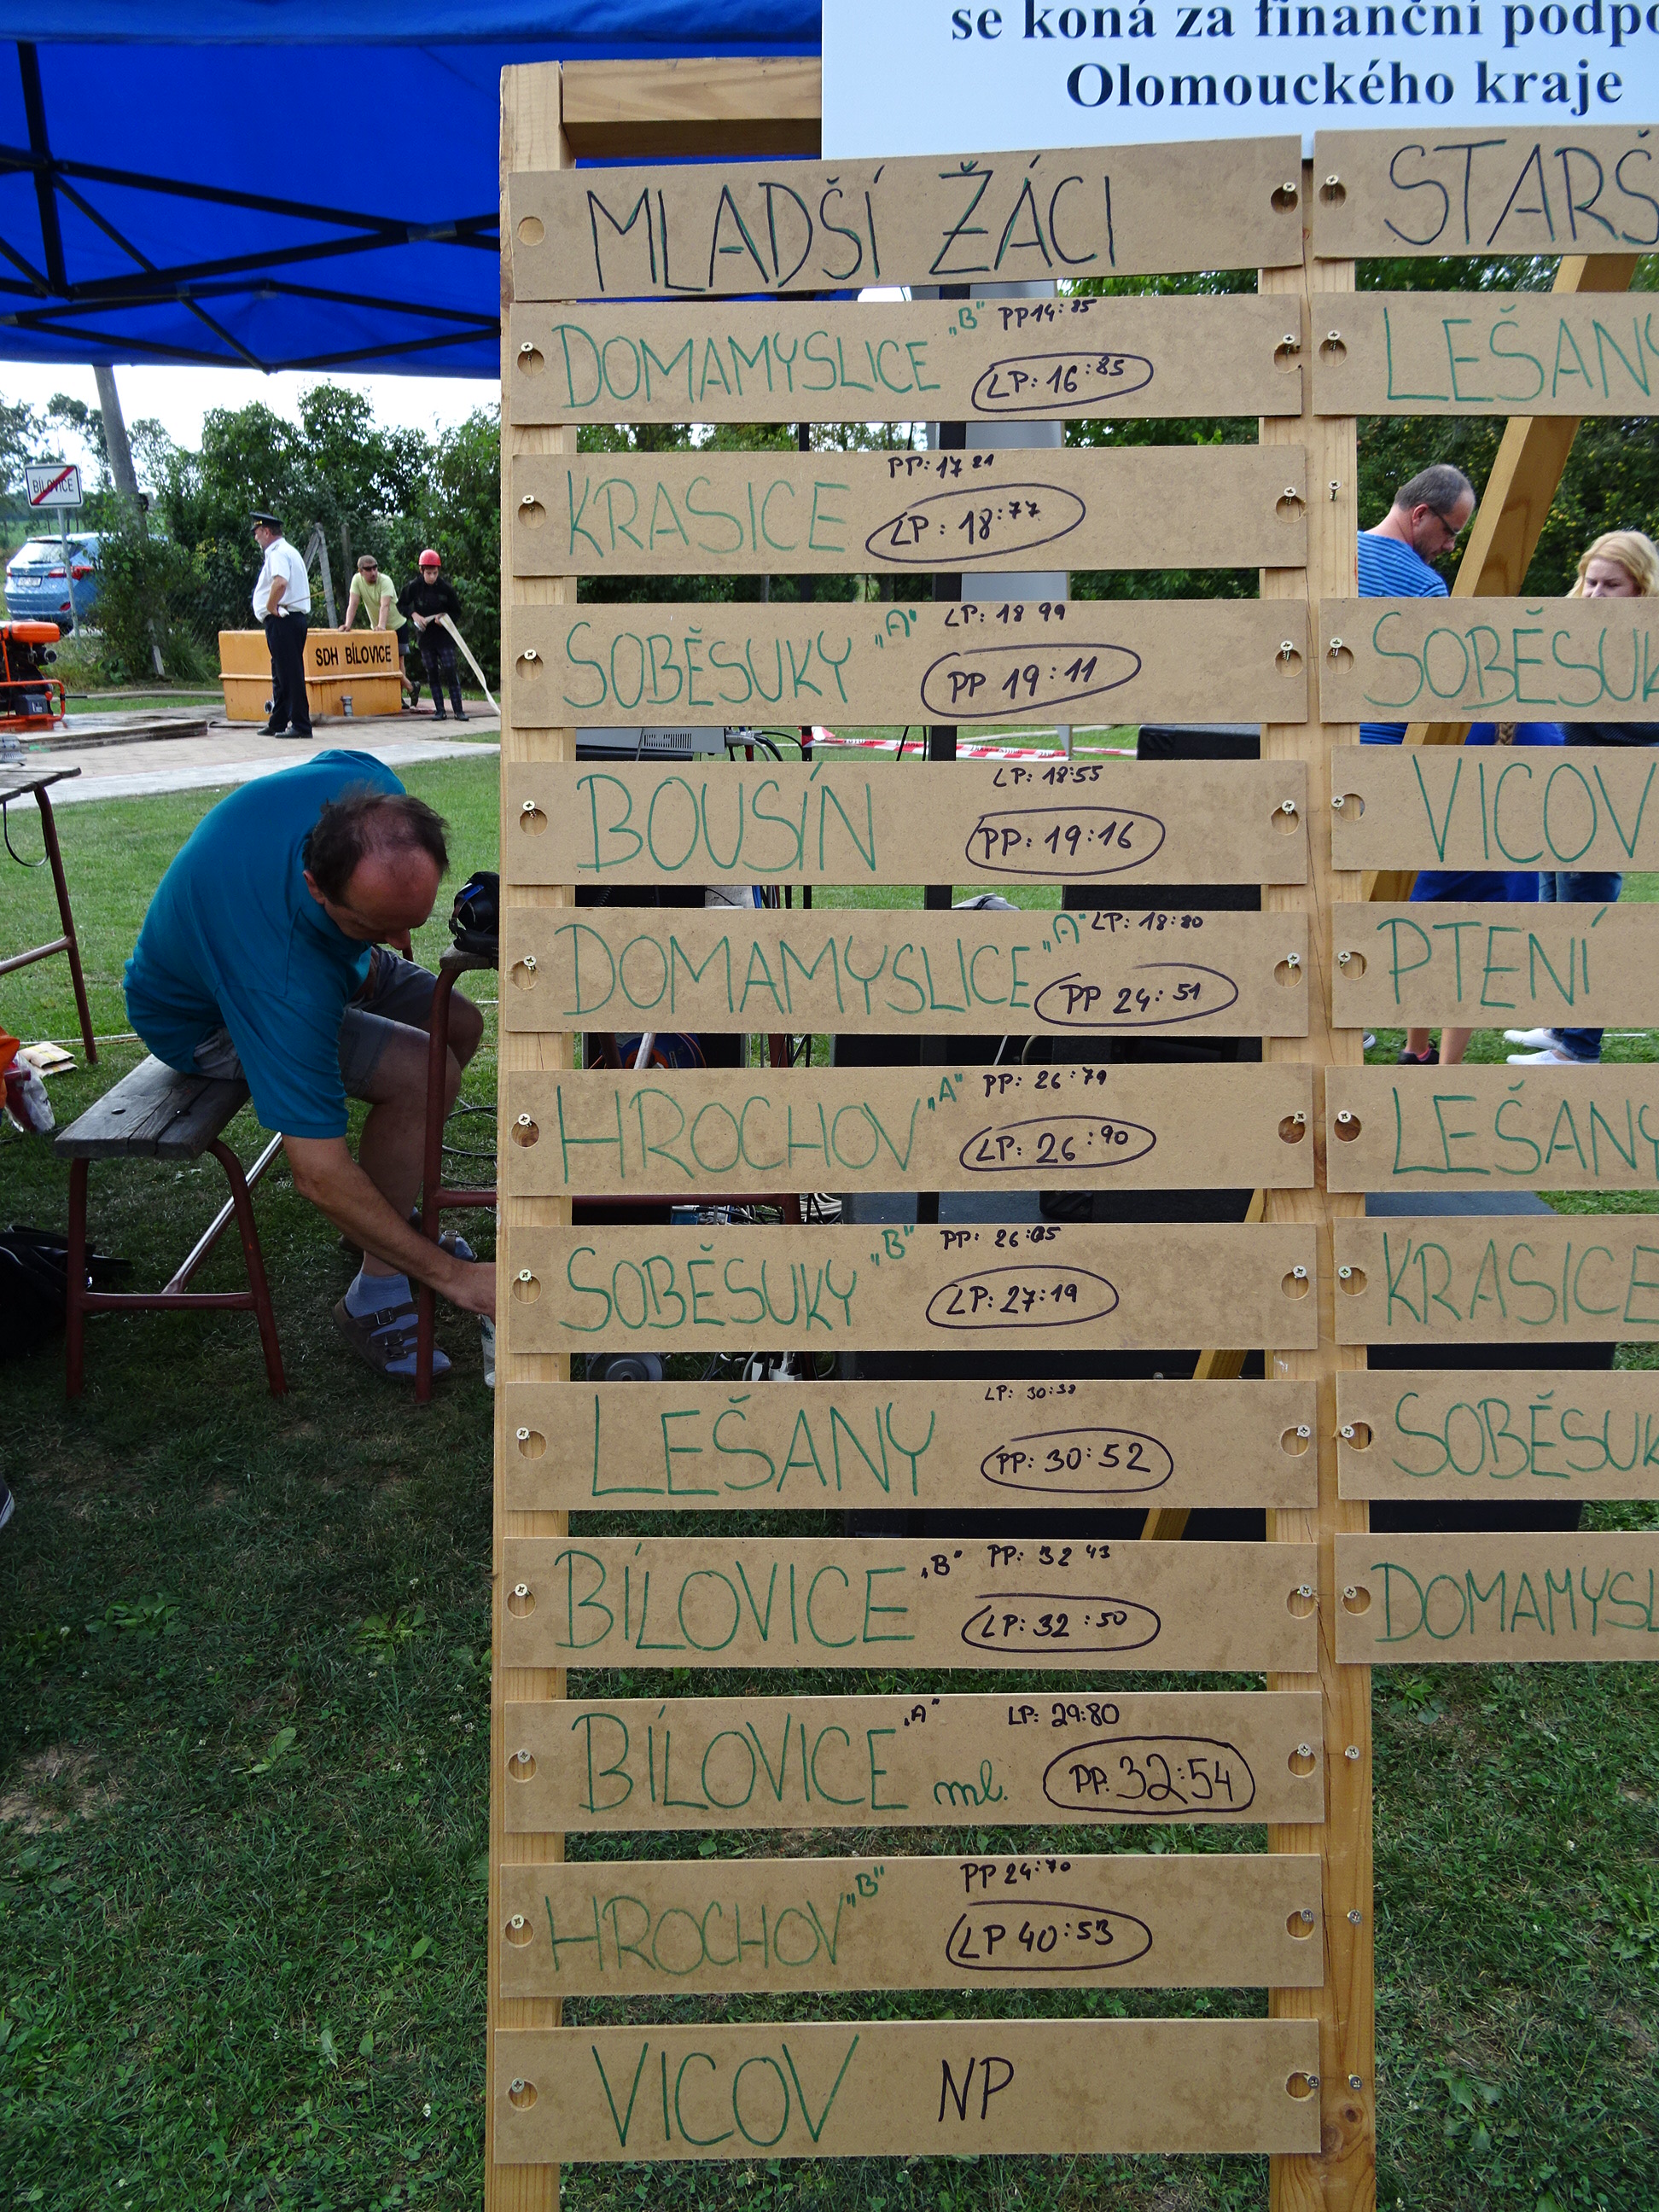 se koná za finanční podpo
Olomouckého kraje
MLADŠÍ ŽÁCI
DOMAMYSLICE „B" PP14:85
LP:16:85
KRASICE PP:17 21
LP:18:77
SOBĚSUKY „A" LP:18 99
PP 19:11
BOUSÍN LP:18:55
PP:19:16
DOMAMYSLICE „A" LP:18:80
PP 24:51
HROCHOV „A" PP:26:79
LP:26:90
SOBĚSUKY „B" PP:26:
LP:27:19
LEŠANY LP:30:38
PP:30:52
BÍLOVICE „B" PP:32 43
LP:32:50
BÍLOVICE ml. „A" LP:29:80
PP:32:54
HROCHOV „B" PP 24:70
LP 40:53
VICOV NP
STARŠ
LEŠANY
SOBĚSUK
VICOV
PTENÍ
LEŠANY
KRASICE
SOBĚSUK
DOMAMYSL
BÍLOVICE
SDH BÍLOVICE